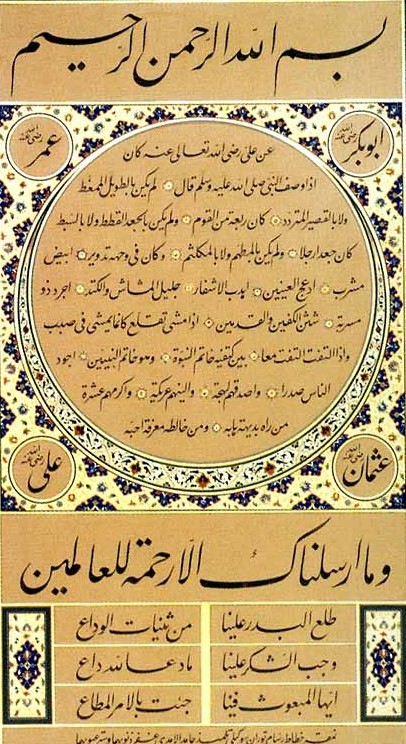 بسم الله الرحمن الرحيم
ابوبكر رضي الله عنه
عمر رضي الله عنه
عن علي رضي الله تعالى عنه كان
اذا وصف النبي صلى الله عليه وسلم قال لم يكن بالطويل الممغط
ولا بالقصير المتردد كان ربعة من القوم ولم يكن بالجعد القطط ولا بالسبط
كان جعدا رجلا ولم يكن بالمطهم ولا بالمكلثم وكان في وجهه تدوير ابيض
مشرب ادعج العينين اهدب الاشفار جليل المشاش والكتد اجرد ذو
مسربة شثن الكفين والقدمين اذا مشى تقلع كانما يمشي في صبب
واذا التفت التفت معا بين كتفيه خاتم النبوة وهو خاتم النبيين اجود
الناس صدرا واصدقهم لهجة والينهم عريكة واكرمهم عشرة
من راه بديهة هابه ومن خالطه معرفة احبه
عثمان رضي الله عنه
علي رضي الله عنه
وما ارسلناك الا رحمة للعالمين
طلع البدر علينا من ثنيات الوداع
وجب الشكر علينا ما دعا لله داع
ايها المبعوث فينا جئت بالامر المطاع